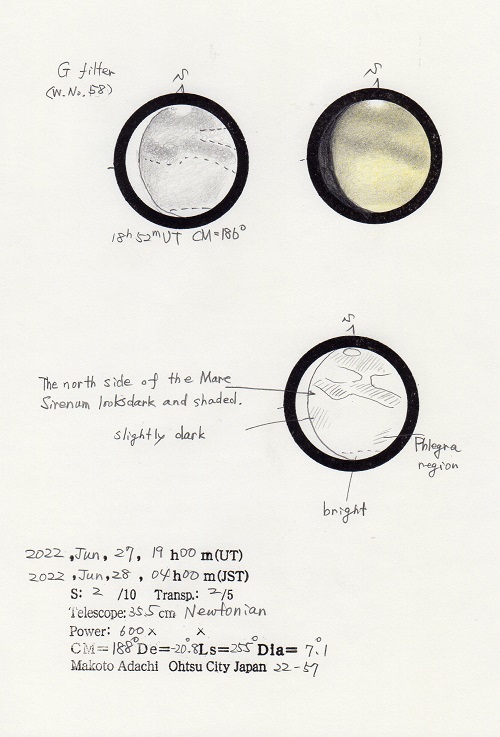 G filter
(W.No.58)
S
S
18h 52m UT CM=186°
S
The north side of the Mare
Sirenum looks dark and shaded.
slightly dark
Phlegra
region
bright
2022 ,Jun, 27, 19 h00 m(UT)
2022 ,Jun,28 , 04 h00 m(JST)
S: 2 /10 Transp.: 2/5
Telescope: 35.5 cm Newtonian
Power: 600 x x
CM=188° De=-20.8° Ls=255° Dia= 7.1
Makoto Adachi Ohtsu City Japan 22-57